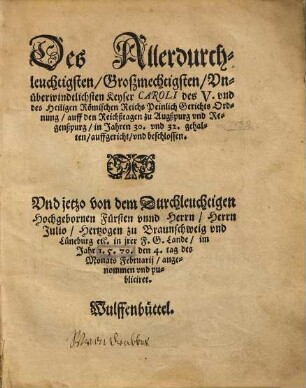 Des Allerdurch-
leuchtigsten/Großmechtigsten/Vn-
überwindlichsten Keyser CAROLI des V. vnd
des Heiligen Römischen Reichs Peinlich Gerichts Ord-
nung/ auff den Reichßtagen zu Augspurg vnd Re-
genspurg/ in Jahren 30. vnd 32. gehal-
ten/auffgericht/vnd beschlossen.
Vnd jetzo von dem Durchleuchtigen
Hochgebornen Fürsten vnnd Herrn/ Herrn
Julio/ Hertzogen zu Braunschweig vnd
Lüneburg etc. in jrer F. G. Lande/ im
Jahr 1. 5. 70. den 4. tag des
Monats Februarij/ ange-
nommen vnd pu-
bliciret.
Wulffenbüttel.